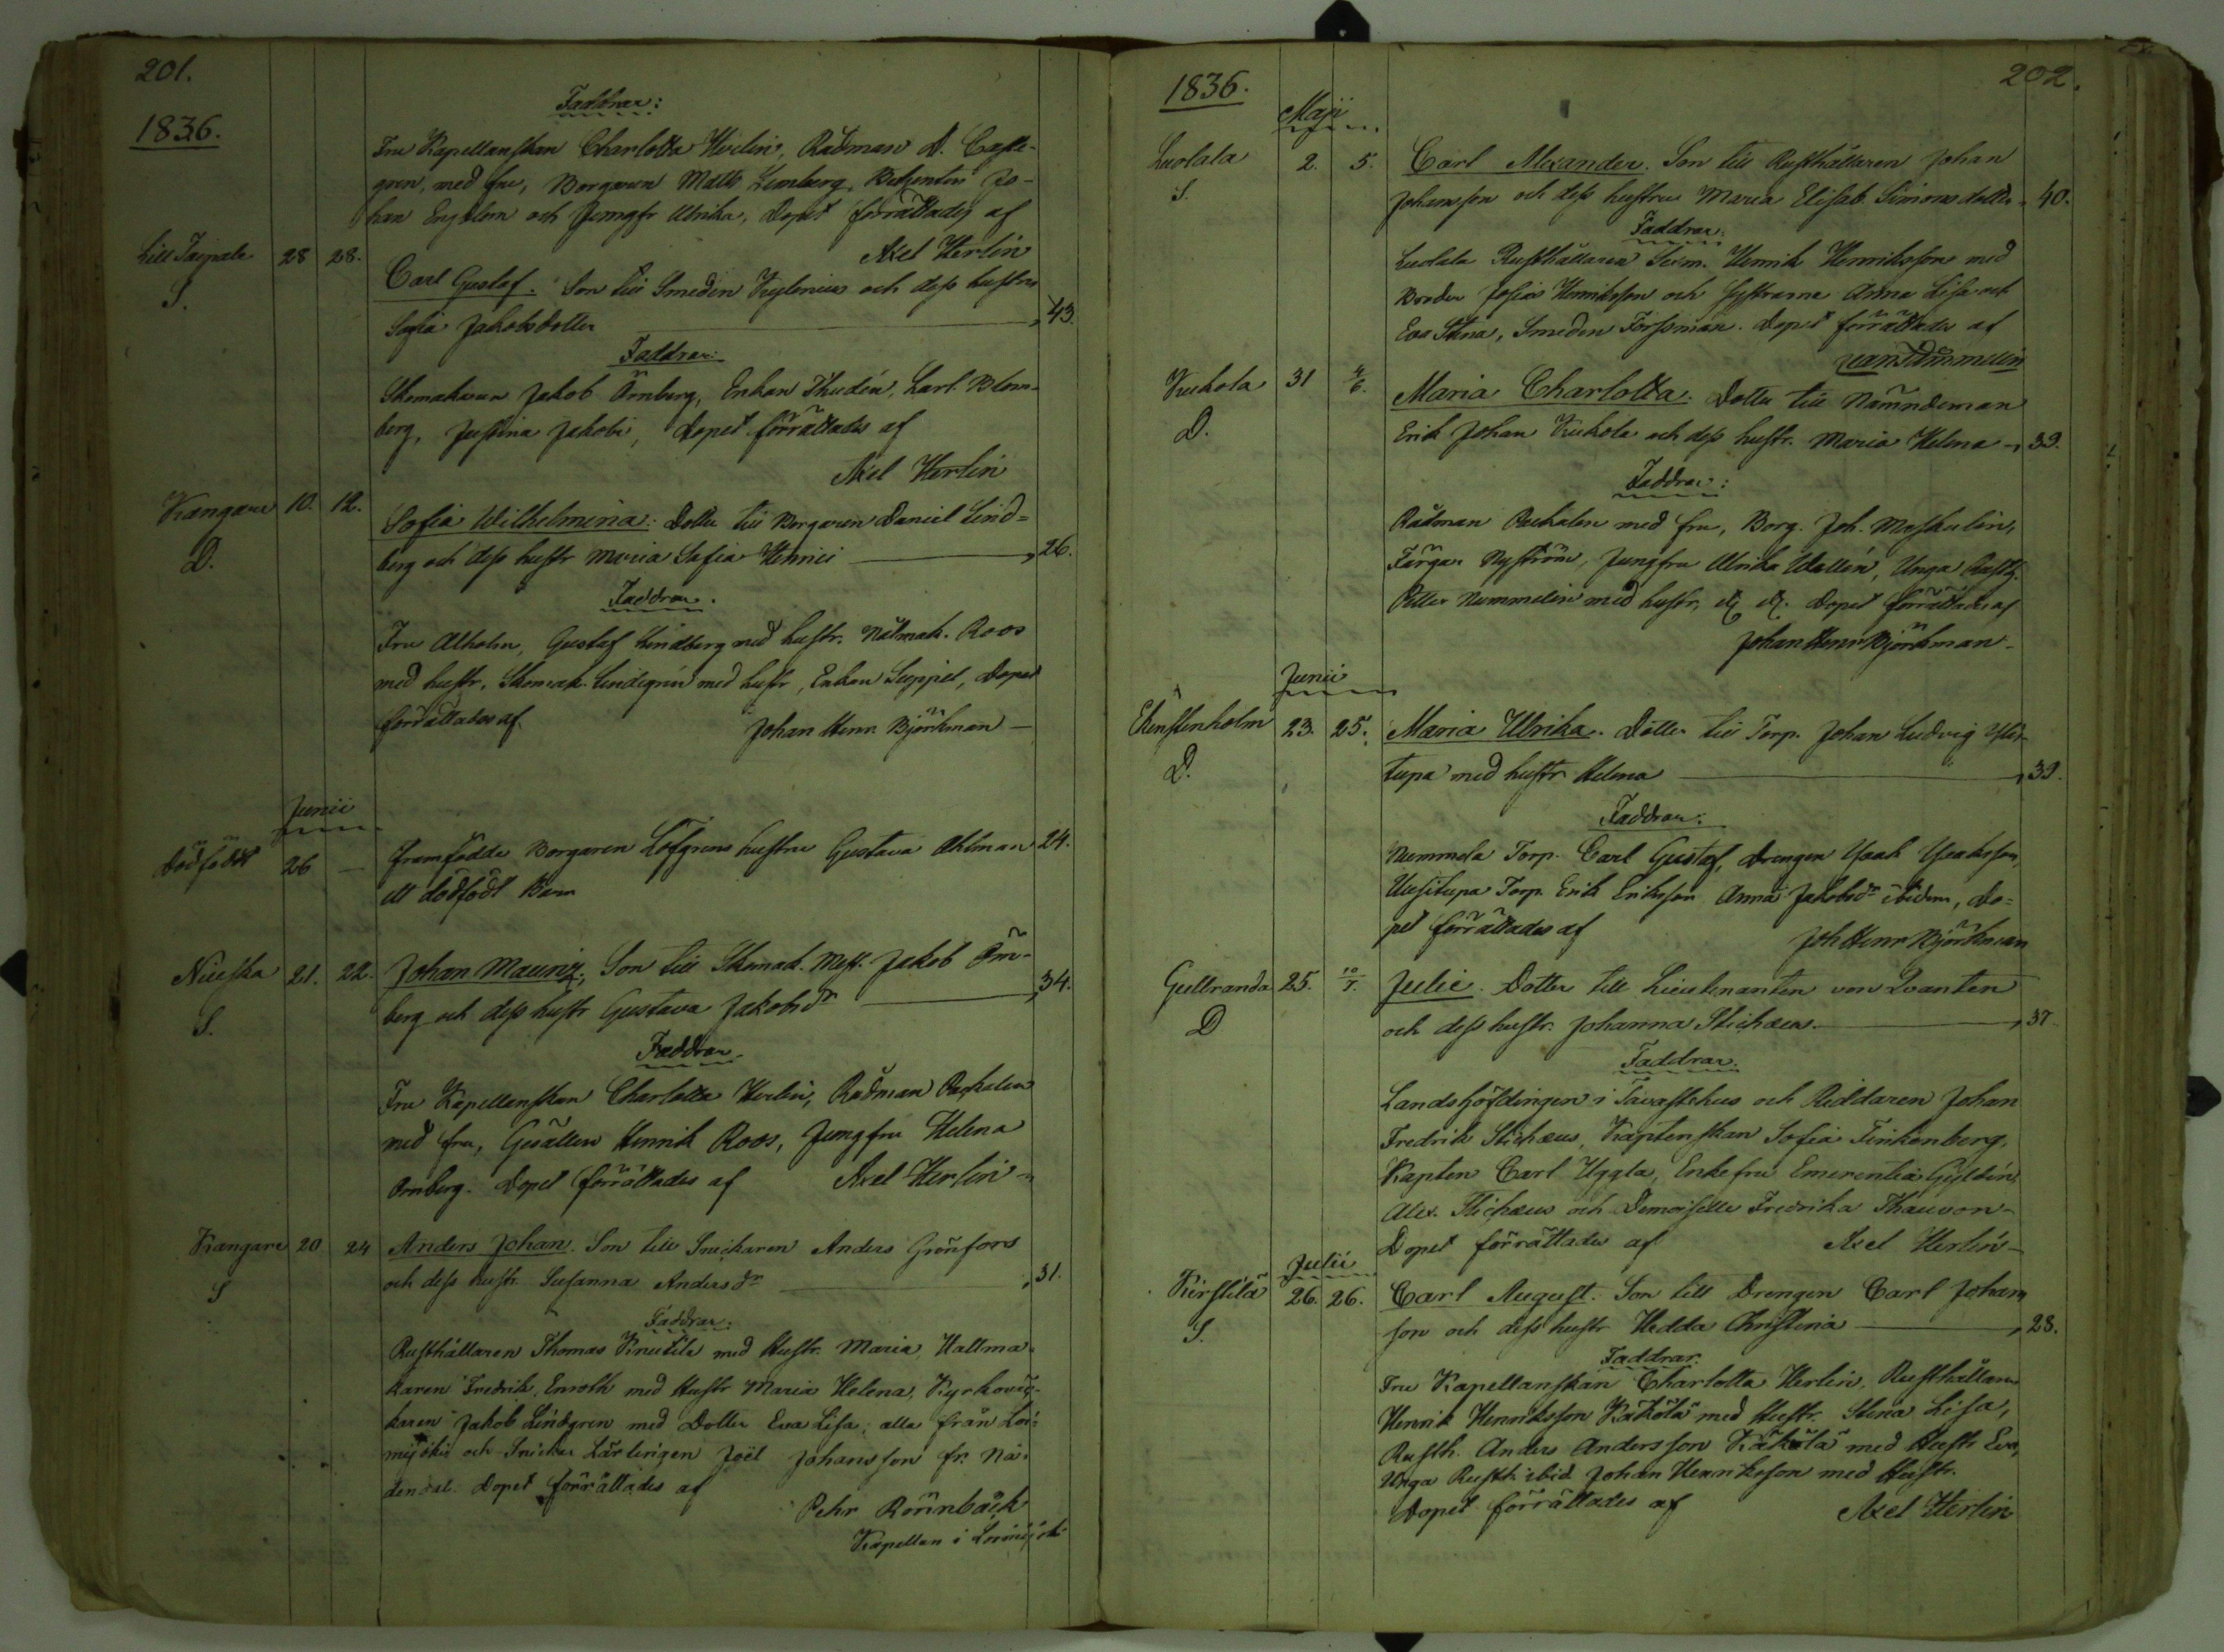 201.
1836.
Faddrar:
Fru Kapellanskan Charlotta Herlin, Rådman A. Castegren,
med fru, Borgaren Matts Lemberg, Betjenten Johan
Engblom och Jungfr Ulrika, Dopet förrättades af
Axel Herlin
Lill Taipale 28 28. Carl Gustaf. Son till Smeden Kylenius och dess hustru
S. Sofia Jakobsdotter 43.
Faddrar:
Skomakaren Jakob Örnberg, Enkan Thudén, Carl Blomberg,
Justina Jakobi, Dopet förrättades af
Axel Herlin
Kangare 10. 12. Sofia Wilhelmina. Dotter till Borgaren Daniel Lind=
D. berg och dess hustr Maria Sofia Henrici 26.
Faddrar.
Fru Alholm, Gustaf Lindberg med hustr. Nålmak. Roos
med hustr. Skomak. Lindegrén med hustr, Enkan Seppel, Dopet
förrättades af Johan Henr Björkman
Junii
Dödfödt 26 — Framfödde Borgaren Löfgrens hustru Gustava Ahlman 24.
ett dödfödt Barn
Nuiska 21. 22. Johan Mauriz. Son till Skomak. Mest. Jakob Örn-
S. berg och dess hustr Gustava Jakobsdr 34.
Faddrar.
Fru Kapellanskan Charlotta Herlin, Rådman Packalen
med fru, Gesällen Henrik Roos, Jungfru Helena
Örnberg. Dopet förrättades af Axel Herlin
Kangare 20 24 Anders Johan. Son till Snickaren Anders Grönfors
S och dess hustr. Susanna Andersdr 31.
Faddrar:
Rusthållaren Thomas Knuutila med Hustr. Maria, Hattma-
karen Fredrik Enroth med Hustr Maria Helena, Kyrkowäk-
taren Jakob Lindgren med Dotter Eva Lisa; alla från Loi-
mijoki och Snickar Lärlingen Joël Johansson fr. Nå-
dendal. Dopet förrättades af
Pehr Rönnbäck
Kapellan i Loimijoki
202.
1836.
Maji
Luolala 2. 5. Carl Alexander. Son till Rusthållaren Johan
S. Johansson och dess hustru Maria Elisab. Simonsdotter 40.
Faddrar.
Luolala Rusthållaren Sexm. Henrik Henriksson med
Broder Josias Henriksson och Systrarne Anna Lisa och
Eva Stina, Smeden Forssman. Dopet förrättades af
Kukola 31 4/6. Maria Charlotta. Dotter till Nämndeman
D. Erik Johan Kukola och dess hustr. Maria Helena 39.
Faddrar:
Rådman Packalen med fru, Borg. Joh. Maskulin,
Färgar Nyström, Jungfru Ulrika Wallén, Unga Rusth.
Petter Nummelin med hustr, etc etc. Dopet förrättades af
Johan Henr Björkman
Junii
Ekenstenholm 23. 25. Maria Ulrika. Dotter till Torp. Johan Ludvig
D. tupa med hustr Helena 39.
Faddrar:
Nummela Torp. Carl Gustaf, Drengen Isaak Isaksson,
Uusitupa Torp. Erik Eriksson Anna Jakobsdr ibidem, Do=
pet förrättades af Joh Henr Björkman
Gullranda 25. 10/7. Julie. Dotter till Lieutenanten von Qvanten
D och dess hustr. Johanna Stichæus. 37
Faddrar.
Landshöfdingen i Tavastehus och Riddaren Johan
Fredrik Stichæus, Kaptenskan Sofia Finkenberg,
Kapten Carl Uggla, Enkefru Emerentia Gyldén,
Alex. Stichæus och Demoiselle Fredrika Thauvon.
Dopet förrättades af Axel Herlin
Julii
Kirstilä 26. 26. Carl August. Son till Drengen Carl Johans
S. son och dess hustr Hedda Christina 28.
Faddrar.
Fru Kapellanskan Charlotta Herlin, Rusthållaren
Henrik Henriksson Käkölä med Hustr. Stina Lisa,
Rusth. Anders Andersson Käkölä med Hustr Eva,
Unga Rusth. ibid Johan Henriksson med Hustr.
Dopet förrättades af Axel Herlin